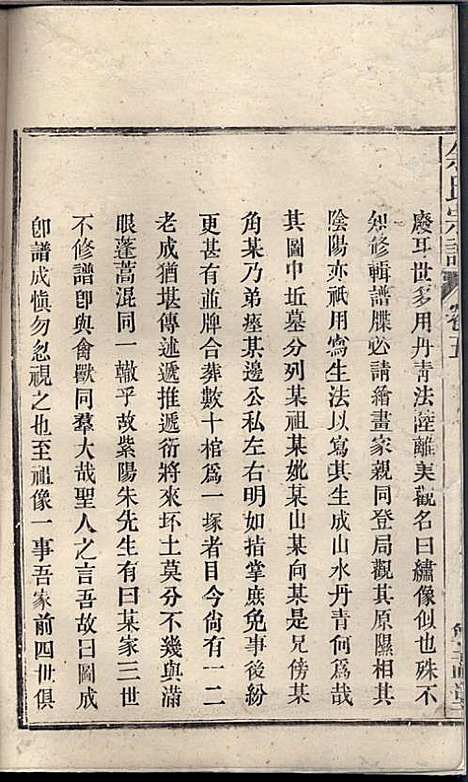 余氏宗譜 卷五
廢耳世多用丹青法陸離美觀名曰繡像似也殊不
知修輯譜牒必請繪畫家親同登局觀其原隰相其
陰陽亦祇用寫生法以寫其生成山水丹青何爲哉
其圖中坵墓分列某祖某妣某山某向某是兄傍某
角某乃弟瘞某邊公私左右明如指掌庶免事後紛
更甚有並牌合葬數十棺爲一塚者目今尙有一二
老成猶堪傳述遞推遞衍將來坏土莫分不幾與滿
眼蓬蒿混同一轍乎故紫陽朱先生有曰某家三世
不修譜卽與禽獸同羣大哉聖人之言吾故曰圖成
卽譜成愼勿忽視之也至祖像一事吾家前四世俱